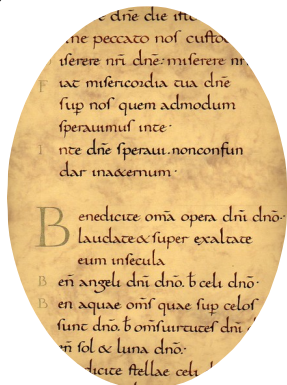 e dñe die iſt
ne peccato noſ cuſto
iſerere nr̄i dñe: miſerere nr
F iat miſericordia tua dñe
ſup noſ quem admodum
ſperauimuſ inte·
I nte dñe ſperaui. nonconfun
dar inæternum·
Benedicite om̄a opera dn̄i dño·
laudate & ſuper exaltate
eum inſecula
B eñ angeli dn̄i dño. ƀ celi dño·
B en aquae om̄ſ quae ſup celoſ
ſunt dño. ƀ om̄ſuirtuteſ dn̄i
eñ ſol & luna dño·
dicite ſtellae celi